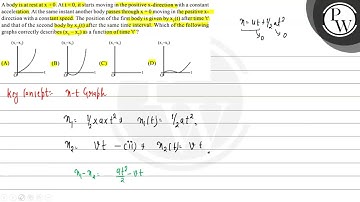 A body is at rest at x = 0. At t = 0, it starts moving in the positive x-direction with a constant
acceleration. At the same instant another body passes through x = 0 moving in the positive x-
direction with a constant speed. The position of the first body is given by x₁(t) after time 't'
and that of the second body by x₂(t) after the same time interval. Which of the following
graphs correctly describes (x₁ – x₂) as a function of time 't'?
x = ut + ½at²
0 0
(x₁–x₂) (x₁–x₂) (x₁–x₂) (x₁–x₂)
(A) (B) (C) (D)
Key Concept:- x-t Graph
x₁ = ½ x a x t² ⇒ x₁(t) = ½at²,
x₂ = vt – (ii) ⇒ x₂(t) = vt,
x₁-x₂ = at²/2 - vt